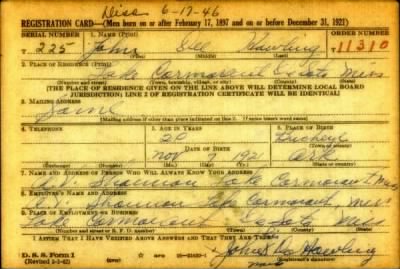 Diss 6-17-46
REGISTRATION CARD—(Men born on or after February 17, 1897 and on or before December 31, 1921)
SERIAL NUMBER 1. NAME (Print) ORDER NUMBER
T 225 John Lee 11310
2. PLACE OF RESIDENCE (Print)
Lake Cormorant De Soto Miss
(Number and street) (Town, township, village, or city) (County) (State)
[THE PLACE OF RESIDENCE GIVEN ON THE LINE ABOVE WILL DETERMINE LOCAL BOARD
JURISDICTION; LINE 2 OF REGISTRATION CERTIFICATE WILL BE IDENTICAL]
3. MAILING ADDRESS
Same
[Mailing address if other than place indicated on line 2. If same insert word same]
4. TELEPHONE 5. AGE IN YEARS 6. PLACE OF BIRTH
20
DATE OF BIRTH (Town or county)
Nov 7
(Exchange) (Number) (Mo.) (Day) (Yr.) (State or country)
7. NAME AND ADDRESS OF PERSON WHO WILL ALWAYS KNOW YOUR ADDRESS
Shannon Lake Cormorant Miss
8. EMPLOYER'S NAME AND ADDRESS
Shannon Lake Cormorant, Miss
9. PLACE OF EMPLOYMENT OR BUSINESS
Lake Cormorant De Soto Miss
(Number and street or R. F. D. number) (Town) (County) (State)
I AFFIRM THAT I HAVE VERIFIED ABOVE ANSWERS AND THAT THEY ARE TRUE.
D. S. S. Form 1
John Lee